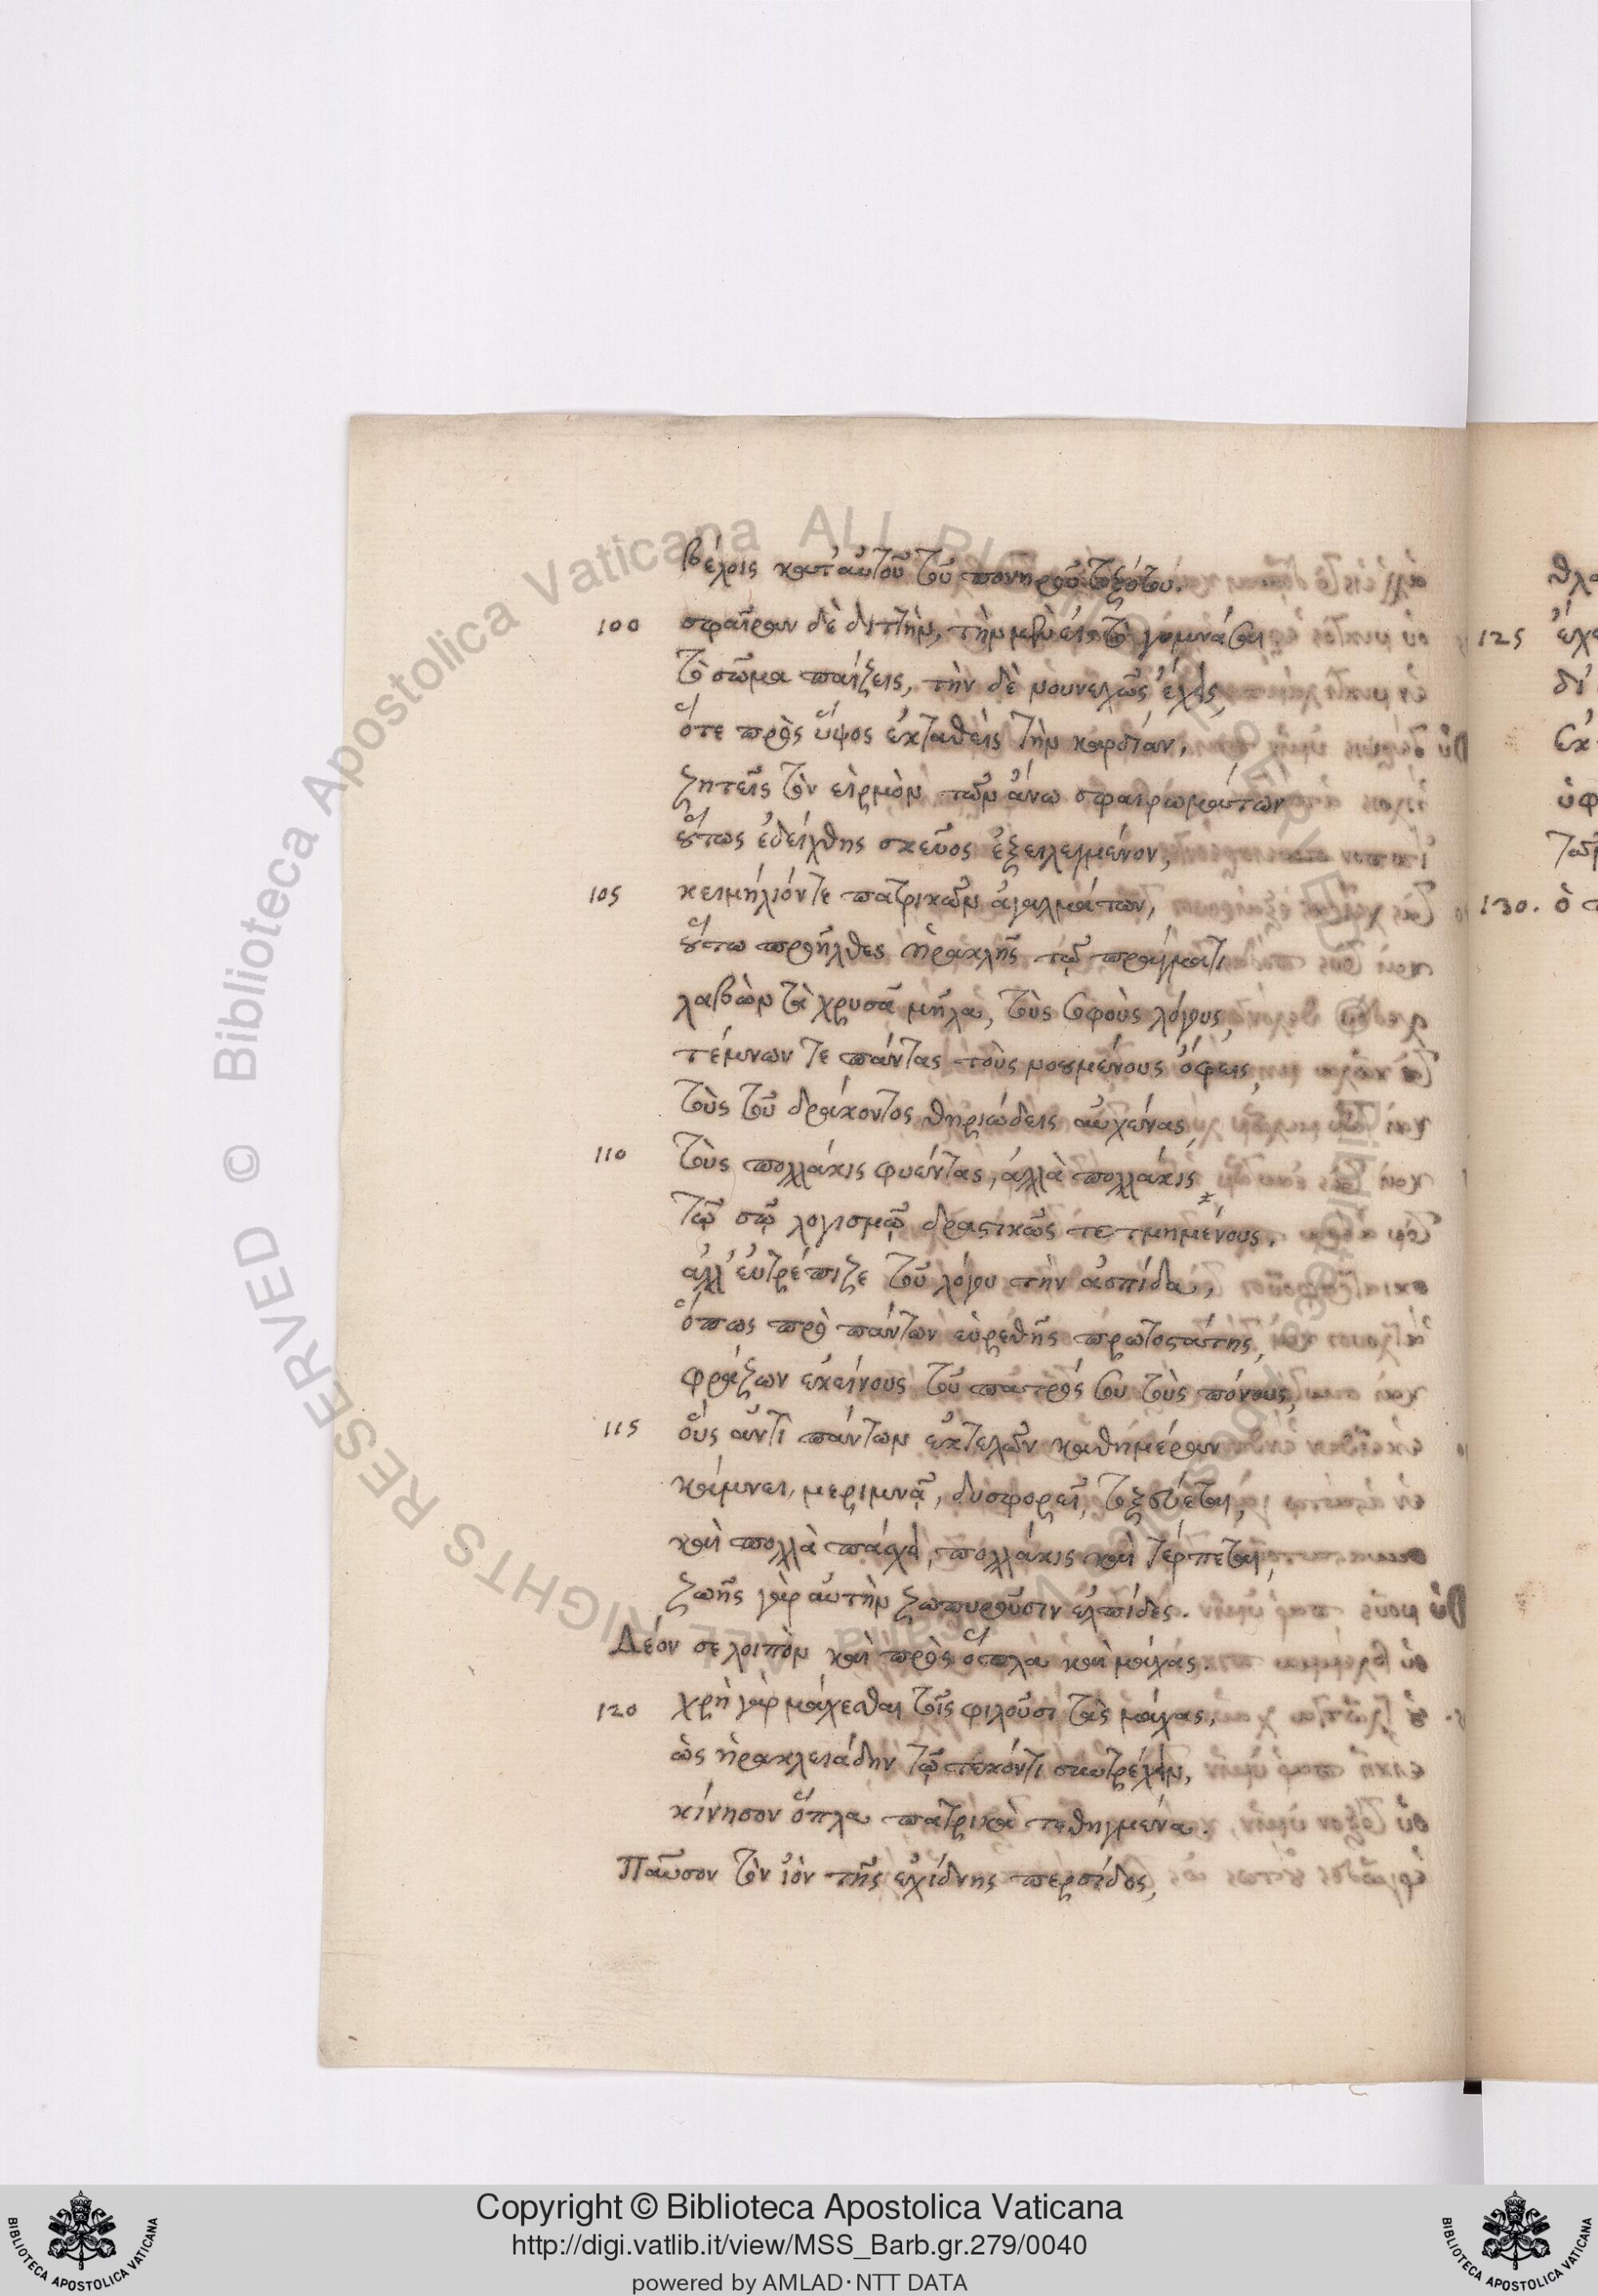 βέλοις κατ' αὐτοῦ τοῦ πονηροῦ τοξότου.
100 σφαῖραν δὲ διττὴν, τὴν μὲν εἰς τὸ γυμνάσαι
τὸ σῶμα παίζεις, τὴν δὲ μουνελῶς ἔχεις,
ὅτε πρὸς ὕψος ἐκταθεὶς τὴν καρδίαν,
ζητεῖς τὸν εἱρμὸν τῶν ἄνω σφαιρωμάτων
οὕτως ἐδείχθης σκεῦος ἐξειλεγμένον,
105 κειμήλιόν τε πατρικῶν ἀγαλμάτων,
οὕτω προῆλθες ἡρακλῆς τῷ πράγματι
λαβὼν τὰ χρυσᾶ μῆλα, τοὺς σοφοὺς λόγους,
τέμνων τε πάντας τοὺς μεμένους ὄφεις,
τοὺς τοῦ δράκοντος θηριώδεις αὐχένας,
110 τοὺς πολλάκις φυέντας, ἀλλὰ πολλάκις
τῷ σῷ λογισμῷ δραστικῶς τετμημένους.
ἀλλ' εὐτρέπιζε τοῦ λόγου τὴν ἀσπίδα,
ὅπως πρὸ πάντων εὑρεθῆς πρωτοστάτης,
φράζων ἐκείνους τοῦ πατρός σου τοὺς πόνους,
115 οὓς ἀντὶ πάντων ἐκτελῶν καθημέραν
κάμνει, μεριμνᾷ, δυσφορεῖ, τοξεύεται,
καὶ πολλὰ πάσχει, πολλάκις καὶ τέρπεται,
ζωῆς γὰρ αὐτὴν ζωπυροῦσιν ἐλπίδες.
Δέον σε λοιπὸν καὶ πρὸς ὅπλα καὶ μάχας.
120 χρὴ γὰρ μάχεσθαι τοῖς φιλοῦσι τὰς μάχας,
ὡς ἡρακλειάδην τῷ τεκόντι συντρέχειν,
κίνησον ὅπλα πατρικὰ τεθηγμένα.
Παῦσον τὸν ἰὸν τῆς ἐχίδνης περσίδος,
125
130.
Copyright © Biblioteca Apostolica Vaticana
http://digi.vatlib.it/view/MSS_Barb.gr.279/0040
powered by AMLAD·NTT DATA